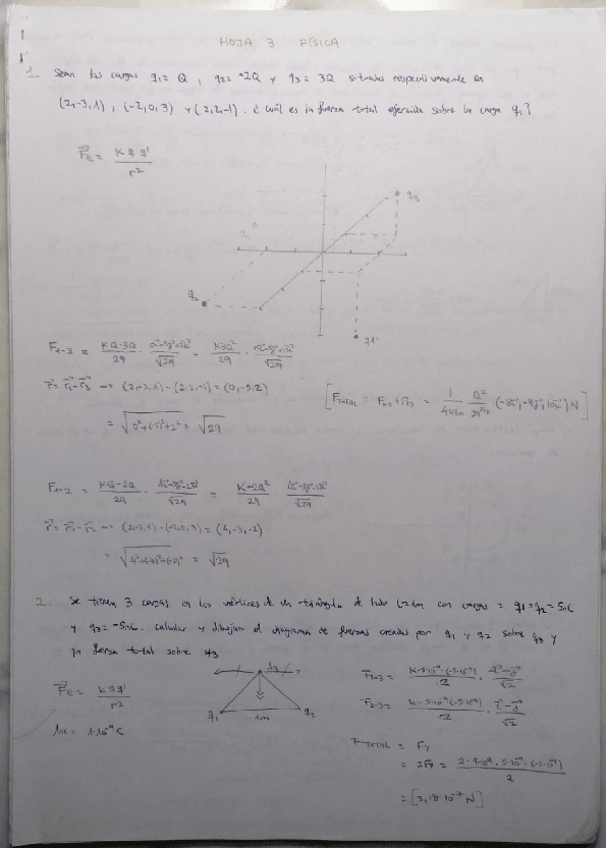 HOJA 3 FÍSICA
1. Sean las cargas q₁ = Q, q₂ = -2Q y q₃ = 3Q situadas respectivamente en
(2,-3,1), (-2,0,3) y (2,2,-1). ¿Cuál es la fuerza total ejercida sobre la carga q₁?
F⃗e = K q q' / r²
q₃
q₂
q₁
F₁₋₃ = KQ·3Q / 29 · / √29 = K3Q² / 29 · / √29
r⃗ = r⃗₁ - r⃗₃ → (2,-3,1) - (2,2,-1) = (0,-5,2)
= √0²+(-5)²+2² = √29
[F TOTAL = = 1 / 4πε₀ Q² / 29^3/2 (-8i⃗, -9j⃗, 10k⃗) N]
F₁₋₂ = KQ·-2Q / 29 · / √29 = K·-2Q² / 29 · / √29
r⃗ = r⃗₁ - r⃗₂ → (2,-3,1) - (-2,0,3) = (4,-3,-2)
= √4²+(-3)²+(-2)² = √29
2. Se tienen 3 cargas en los vértices de un triángulo de lado L=1m con cargas = q₁ = q₂ = 5nC
y q₃ = -5nC. Calcular y dibujar el diagrama de fuerzas creadas por q₁ y q₂ sobre q₃ y
la fuerza total sobre q₃
q₃
q₁ 1m q₂
F⃗e = K q q' / r²
1nc = 1·10⁻⁹ C
F₁₋₃ = K·5·10⁻⁹·(-5·10⁻⁹) / 2 · i⃗-j⃗ / √2
F₂₋₃ = K·5·10⁻⁹(-5·10⁻⁹) / 2 · i⃗-j⃗ / √2
F TOTAL = Fy
= 2Fy = 2·9·10⁹·5·10⁻⁹·(-5·10⁻⁹) / 2
= [3,18·10⁻⁷ N]